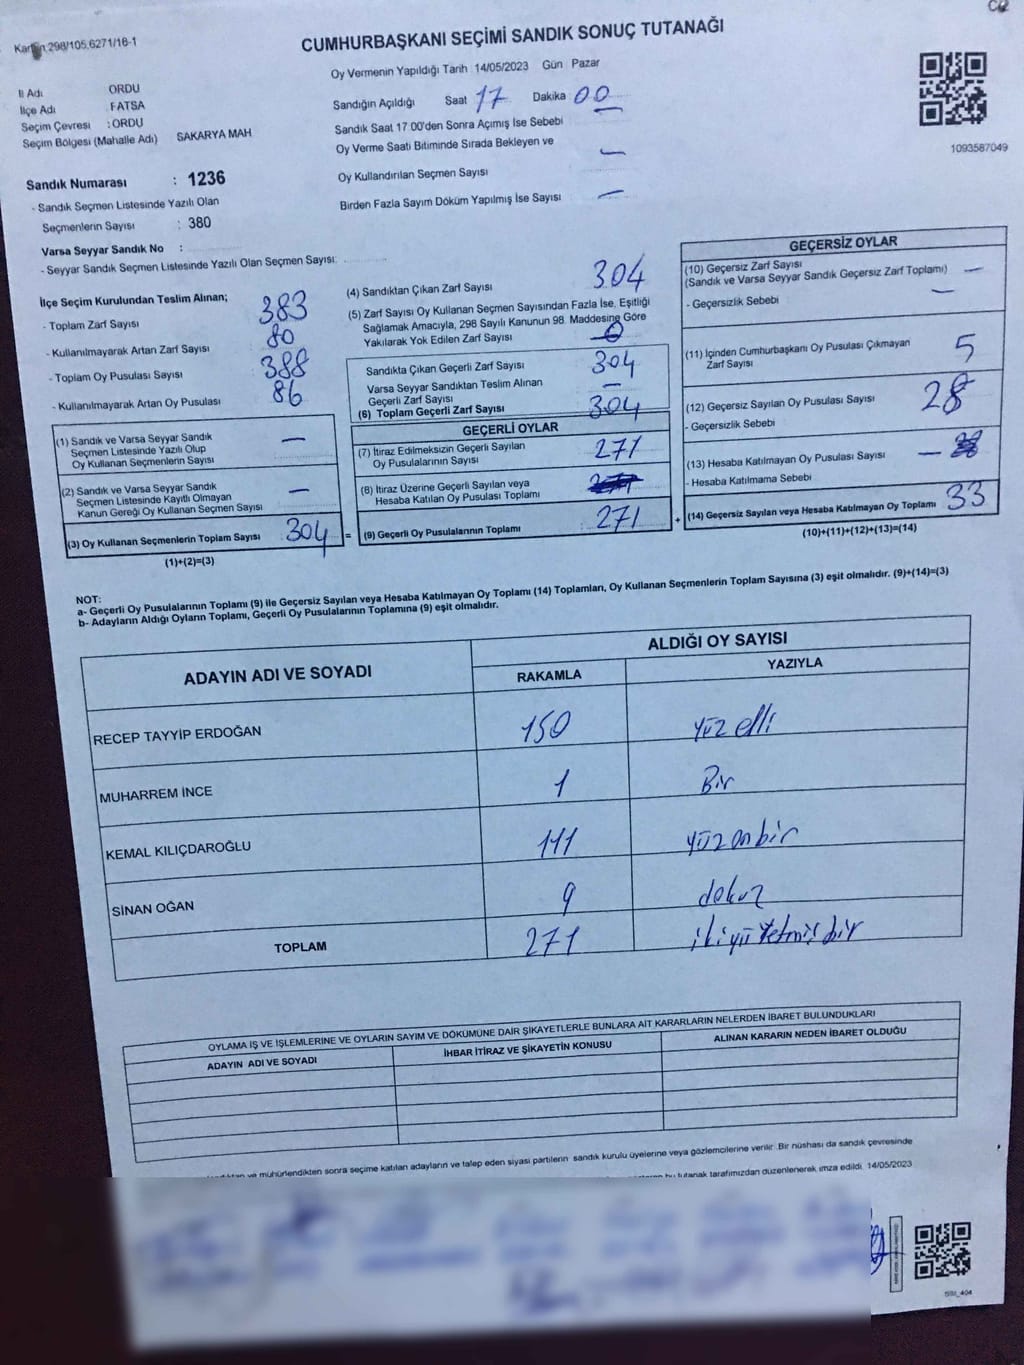 298/105,6271/16-1
CUMHURBAŞKANI SEÇİMİ SANDIK SONUÇ TUTANAĞI
Oy Vermenin Yapıldığı Tarih 14/05/2023 Gün Pazar
İl Adı ORDU
İlçe Adı : FATSA
Seçim Çevresi : ORDU
Seçim Bölgesi (Mahalle Adı) SAKARYA MAH
Sandığın Açıldığı Saat 17 Dakika 00
Sandık Saat 17:00'den Sonra Açımış İse Sebebi
Oy Verme Saati Bitiminde Sırada Bekleyen ve
Oy Kullandırılan Seçmen Sayısı —
Birden Fazla Sayım Döküm Yapılmış İse Sayısı —
1093587049
Sandık Numarası : 1236
- Sandık Seçmen Listesinde Yazılı Olan
Seçmenlerin Sayısı : 380
Varsa Seyyar Sandık No :
- Seyyar Sandık Seçmen Listesinde Yazılı Olan Seçmen Sayısı:
İlçe Seçim Kurulundan Teslim Alınan;
- Toplam Zarf Sayısı 383
- Kullanılmayarak Artan Zarf Sayısı 80
- Toplam Oy Pusulası Sayısı 388
- Kullanılmayarak Artan Oy Pusulası 86
(1) Sandık ve Varsa Seyyar Sandık
Seçmen Listesinde Yazılı Olup
Oy Kullanan Seçmenlerin Sayısı —
(2) Sandık ve Varsa Seyyar Sandık
Seçmen Listesinde Kayıtlı Olmayan
Kanun Gereği Oy Kullanan Seçmen Sayısı —
(3) Oy Kullanan Seçmenlerin Toplam Sayısı 304 =
(1)+(2)=(3)
(4) Sandıktan Çıkan Zarf Sayısı 304
(5) Zarf Sayısı Oy Kullanan Seçmen Sayısından Fazla İse, Eşitliği
Sağlamak Amacıyla, 298 Sayılı Kanunun 98. Maddesine Göre
Yakılarak Yok Edilen Zarf Sayısı
Sandıkta Çıkan Geçerli Zarf Sayısı 304
Varsa Seyyar Sandıktan Teslim Alınan
Geçerli Zarf Sayısı —
(6) Toplam Geçerli Zarf Sayısı 304
GEÇERLİ OYLAR
(7) İtiraz Edilmeksizin Geçerli Sayılan
Oy Pusulalarının Sayısı 271
(8) İtiraz Üzerine Geçerli Sayılan veya
Hesaba Katılan Oy Pusulası Toplamı
(9) Geçerli Oy Pusulalarının Toplamı 271 +
GEÇERSİZ OYLAR
(10) Geçersiz Zarf Sayısı
(Sandık ve Varsa Seyyar Sandık Geçersiz Zarf Toplamı) —
- Geçersizlik Sebebi —
(11) İçinden Cumhurbaşkanı Oy Pusulası Çıkmayan
Zarf Sayısı 5
(12) Geçersiz Sayılan Oy Pusulası Sayısı 28
- Geçersizlik Sebebi
(13) Hesaba Katılmayan Oy Pusulası Sayısı —
- Hesaba Katılmama Sebebi
(14) Geçersiz Sayılan veya Hesaba Katılmayan Oy Toplamı 33
(10)+(11)+(12)+(13)=(14)
NOT:
a- Geçerli Oy Pusulalarının Toplamı (9) ile Geçersiz Sayılan veya Hesaba Katılmayan Oy Toplamı (14) Toplamları, Oy Kullanan Seçmenlerin Toplam Sayısına (3) eşit olmalıdır. (9)+(14)=(3)
b- Adayların Aldığı Oyların Toplamı, Geçerli Oy Pusulalarının Toplamına (9) eşit olmalıdır.
ADAYIN ADI VE SOYADI
ALDIĞI OY SAYISI
RAKAMLA YAZIYLA
RECEP TAYYİP ERDOĞAN 150 yüz elli
MUHARREM İNCE 1 Bir
KEMAL KILIÇDAROĞLU 111 yüz onbir
SİNAN OĞAN 9 dokuz
TOPLAM 271 ikiyüzyetmişbir
OYLAMA İŞ VE İŞLEMLERİNE VE OYLARIN SAYIM VE DÖKÜMÜNE DAİR ŞİKAYETLERLE BUNLARA AİT KARARLARIN NELERDEN İBARET BULUNDUKLARI
ADAYIN ADI VE SOYADI İHBAR İTİRAZ VE ŞİKAYETİN KONUSU ALINAN KARARIN NEDEN İBARET OLDUĞU
ve mühürlendikten sonra seçime katılan adayların ve talep eden siyasi partilerin sandık kurulu üyelerine veya gözlemcilerine verilir. Bir nüshası da sandık çevresinde
bu tutanak tarafımızdan düzenlenerek imza edildi. 14/05/2023